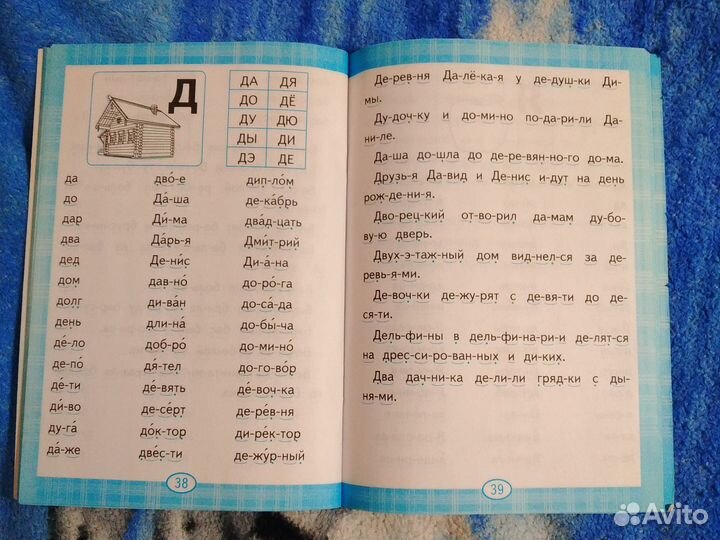 Д
ДА ДЯ
ДО ДЁ
ДУ ДЮ
ДЫ ДИ
ДЭ ДЕ
да дво́-е дип-ло́м
до Да́-ша де-ка́брь
дар Ди́-ма два́д-цать
два Да́рь-я Дми́т-рий
дед Де-ни́с Ди-а́-на
дом дав-но́ до-ро́-га
долг ди-ва́н до-са́-да
день дли-на́ до-бы́-ча
де́-ло доб-ро́ до-ми-но́
де-по́ дя́-тел до-го-во́р
де́-ти де́-вять де́-воч-ка
ди́-во де-се́рт де-ре́в-ня
ду-га́ до́к-тор ди-ре́к-тор
да́-же две́с-ти де-жу́р-ный
38
Де-рев-ня Да-лё-ка-я у де-душ-ки Ди-
мы.
Ду-доч-ку и до-ми-но по-да-ри-ли Да-
ни-ле.
Да-ша до-шла до де-ре-вян-но-го до-ма.
Друзь-я Да-вид и Де-нис и-дут на день
рож-де-ни-я.
Дво-рец-кий от-во-рил да-мам ду-бо-
ву-ю дверь.
Двух-э-таж-ный дом вид-нел-ся за де-
ревь-я-ми.
Де-воч-ки де-жу-рят с де-вя-ти до де-
ся-ти.
Дель-фи-ны в дель-фи-на-ри-и де-лят-ся
на дрес-си-ро-ван-ных и ди-ких.
Два дач-ни-ка де-ли-ли гряд-ки с ды-
ня-ми.
39
Avito